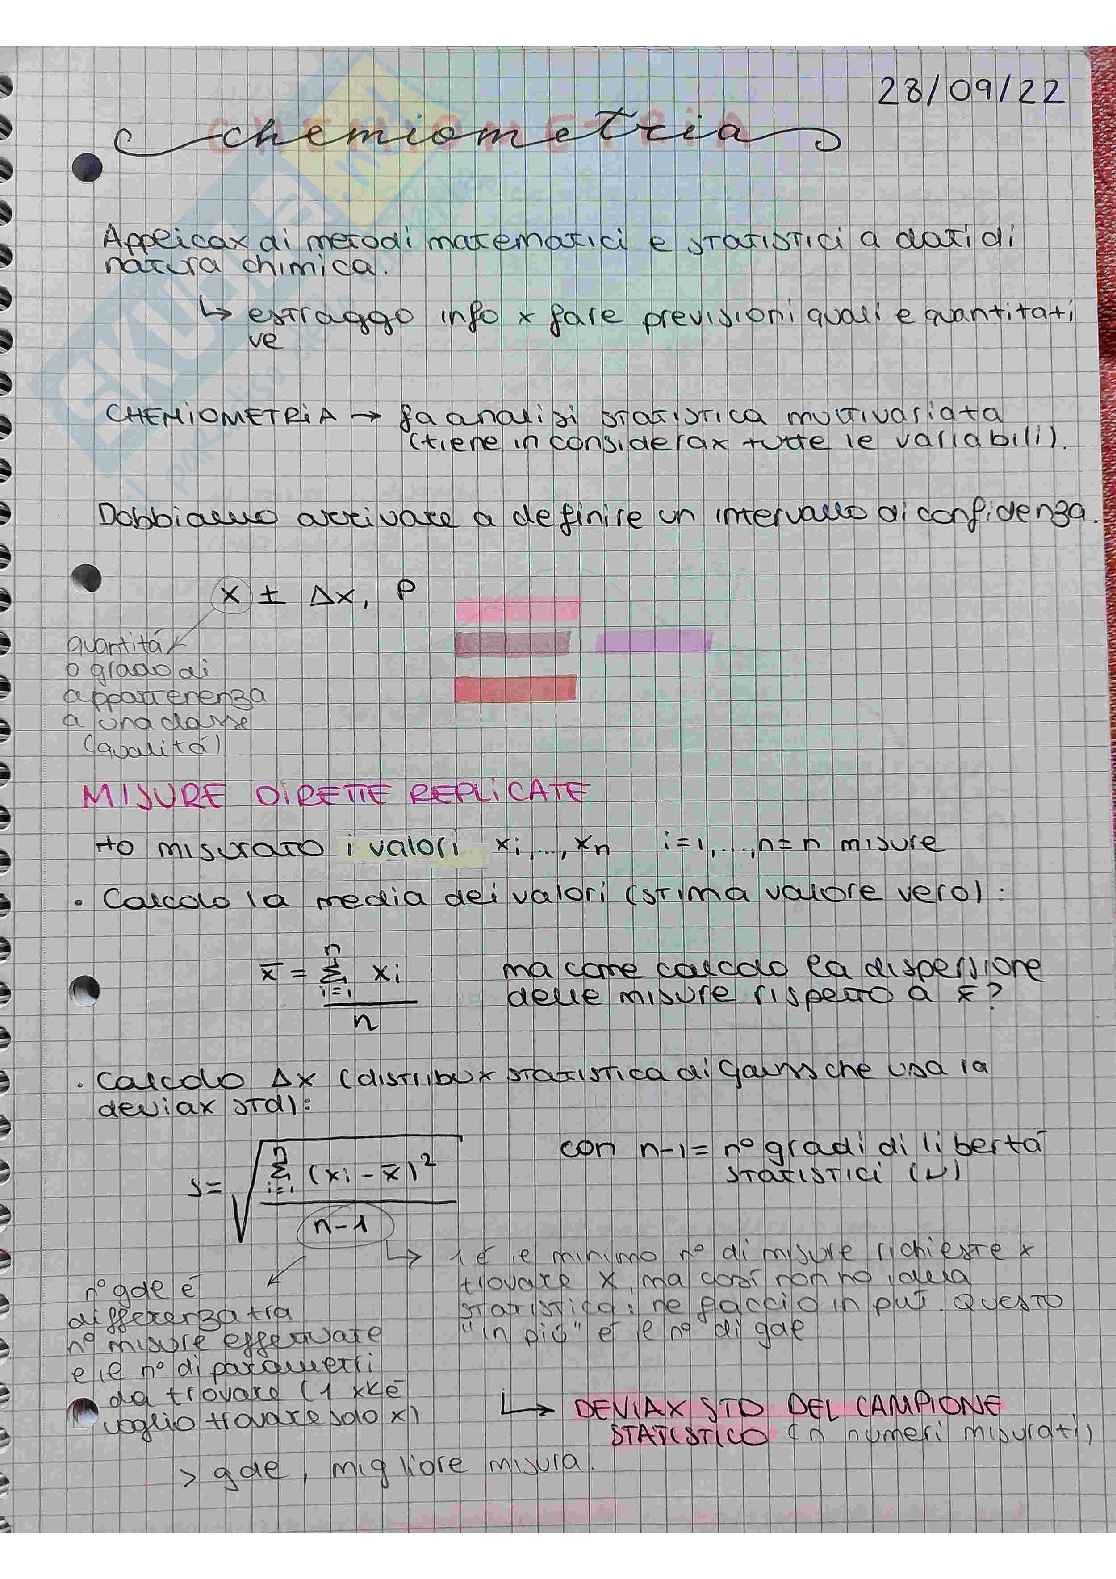 28/09/22
chemiometria
Applicax di metodi matematici e statistici a dati di
natura chimica.
↳ estraggo info x fare previsioni quali e quantitati
ve
CHEMIOMETRIA → fa analisi statistica multivariata
(tiene in considerax tutte le variabili).
Dobbiamo arrivare a definire un intervallo di confidenza.
x ± Δx, P
quantità
o grado di
appartenenza
a una classe
(qualità)
MISURE DIRETTE REPLICATE
Ho misurato i valori xi,...,xn i=1,...,n= n misure
• Calcolo la media dei valori (stima valore vero):
x̄ = Σ(i=1→n) xi / n
ma come calcolo la dispersione
delle misure rispetto a x̄?
• Calcolo Δx (distribux statistica di Gauss che usa la
deviax std):
s = √( Σ(i=1→n) (xi - x̄)² / (n-1) )
con n-1= n° gradi di libertà
statistici (ν)
↳ 1 è il minimo n° di misure richieste x
trovare x, ma così non ho
statistica; ne faccio in più. Questo
"in più" è il n° di gdl
n° gdl è
differenza tra
n° misure effettuate
e il n° di parametri
da trovare (1 xké
voglio trovare solo x)
↳ DEVIAX STD DEL CAMPIONE
STATISTICO (n numeri misurati)
> gdl, migliore misura.
SKUOLA